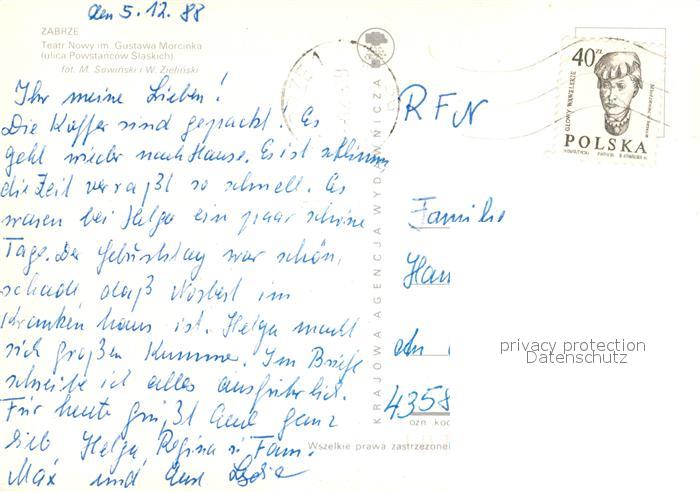 den 5.12.88
ZABRZE
Teatr Nowy im. Gustawa Morcinka
(ulica Powstańców Śląskich)
fot. M. Sowiński i W. Zieliński
Ihr meine Lieben!
Die Koffer sind gepackt! Es
geht wieder nach Hause. Es ist schlimm,
die Zeit verraßt so schnell. Es
waren bei Helga ein paar schöne
Tage. Der Geburtstag war schön,
schade daß Norbert im
Krankenhaus ist. Helga macht
sich großen Kummer. Im Briefe
schreibe ich alles ausführlich.
Für heute grüßt Euch ganz
lieb, Helga, Regina u. Fam.
Max und Eure
KRAJOWA AGENCJA WYDAWNICZA
Wszelkie prawa zastrzeżone
40 zł
GŁOWY WAWELSKIE
POLSKA
RFN
Familie
Han
An
4358
ozn kod
privacy protection
Datenschutz